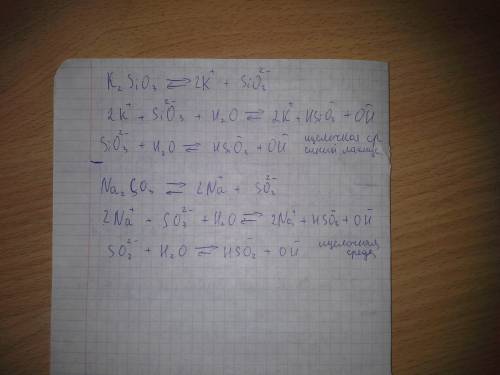 K₂SiO₃ ⇌ 2K⁺ + SiO₃²⁻
2K⁺ + SiO₃²⁻ + H₂O ⇌ 2K⁺ + HSiO₃⁻ + OH⁻
SiO₃²⁻ + H₂O ⇌ HSiO₃⁻ + OH⁻ щелочная ср
синий лакмус
Na₂SO₃ ⇌ 2Na⁺ + SO₃²⁻
2Na⁺ + SO₃²⁻ + H₂O ⇌ 2Na⁺ + HSO₃⁻ + OH⁻
SO₃²⁻ + H₂O ⇌ HSO₃⁻ + OH⁻ щелочная
среда